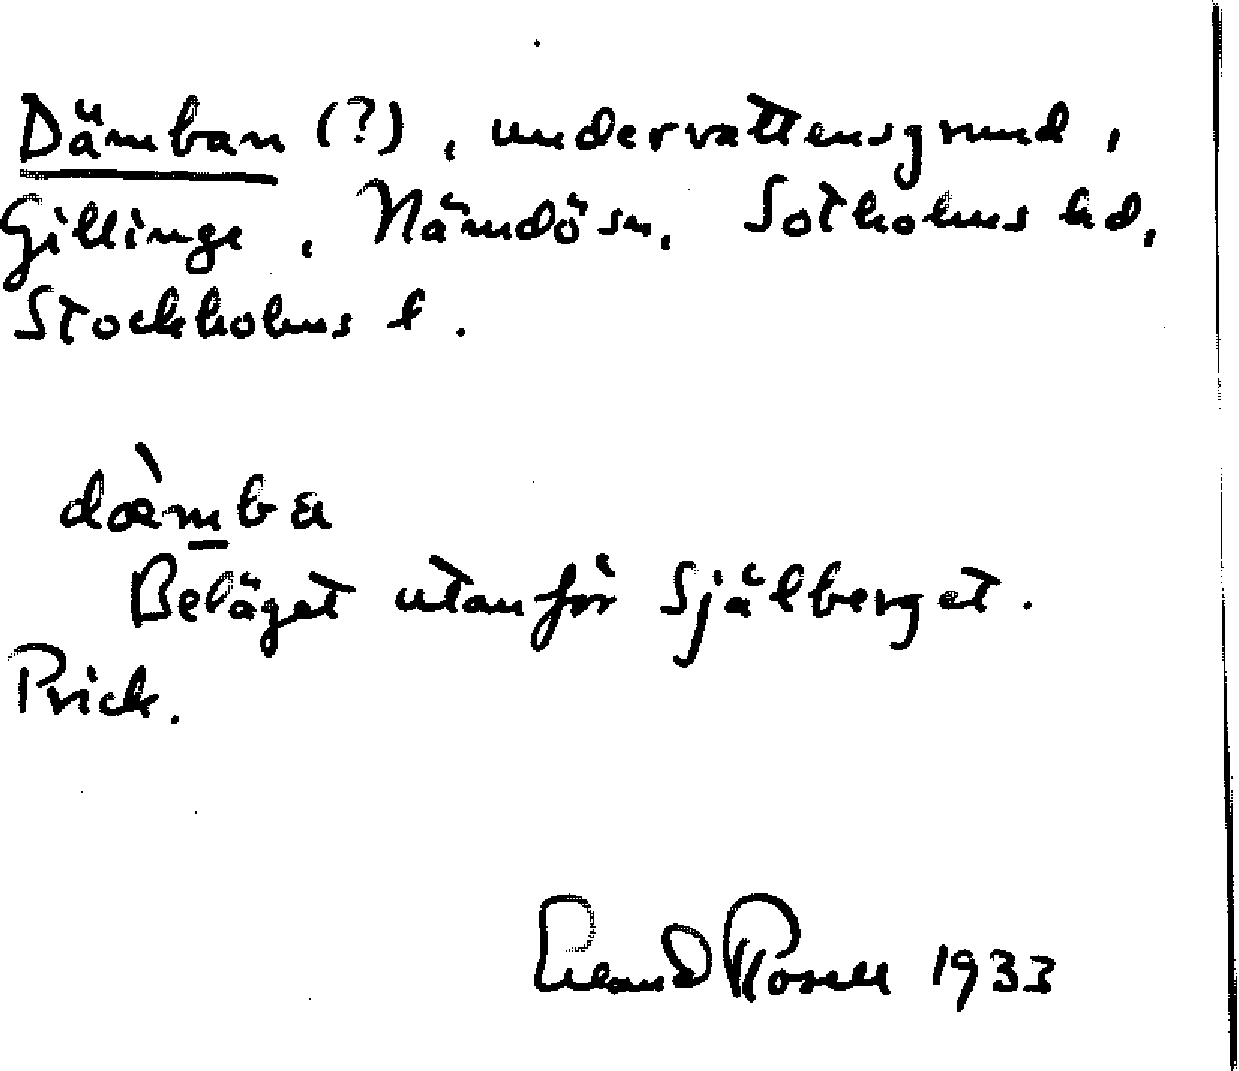 Dämban (?), undervattensgrund,
Gillinge, Nämdö sn, Sotholms hd,
Stockholms l.
dæ̀mba
Beläget utanför Själberget.
Prick.
Erland Rosell 1933